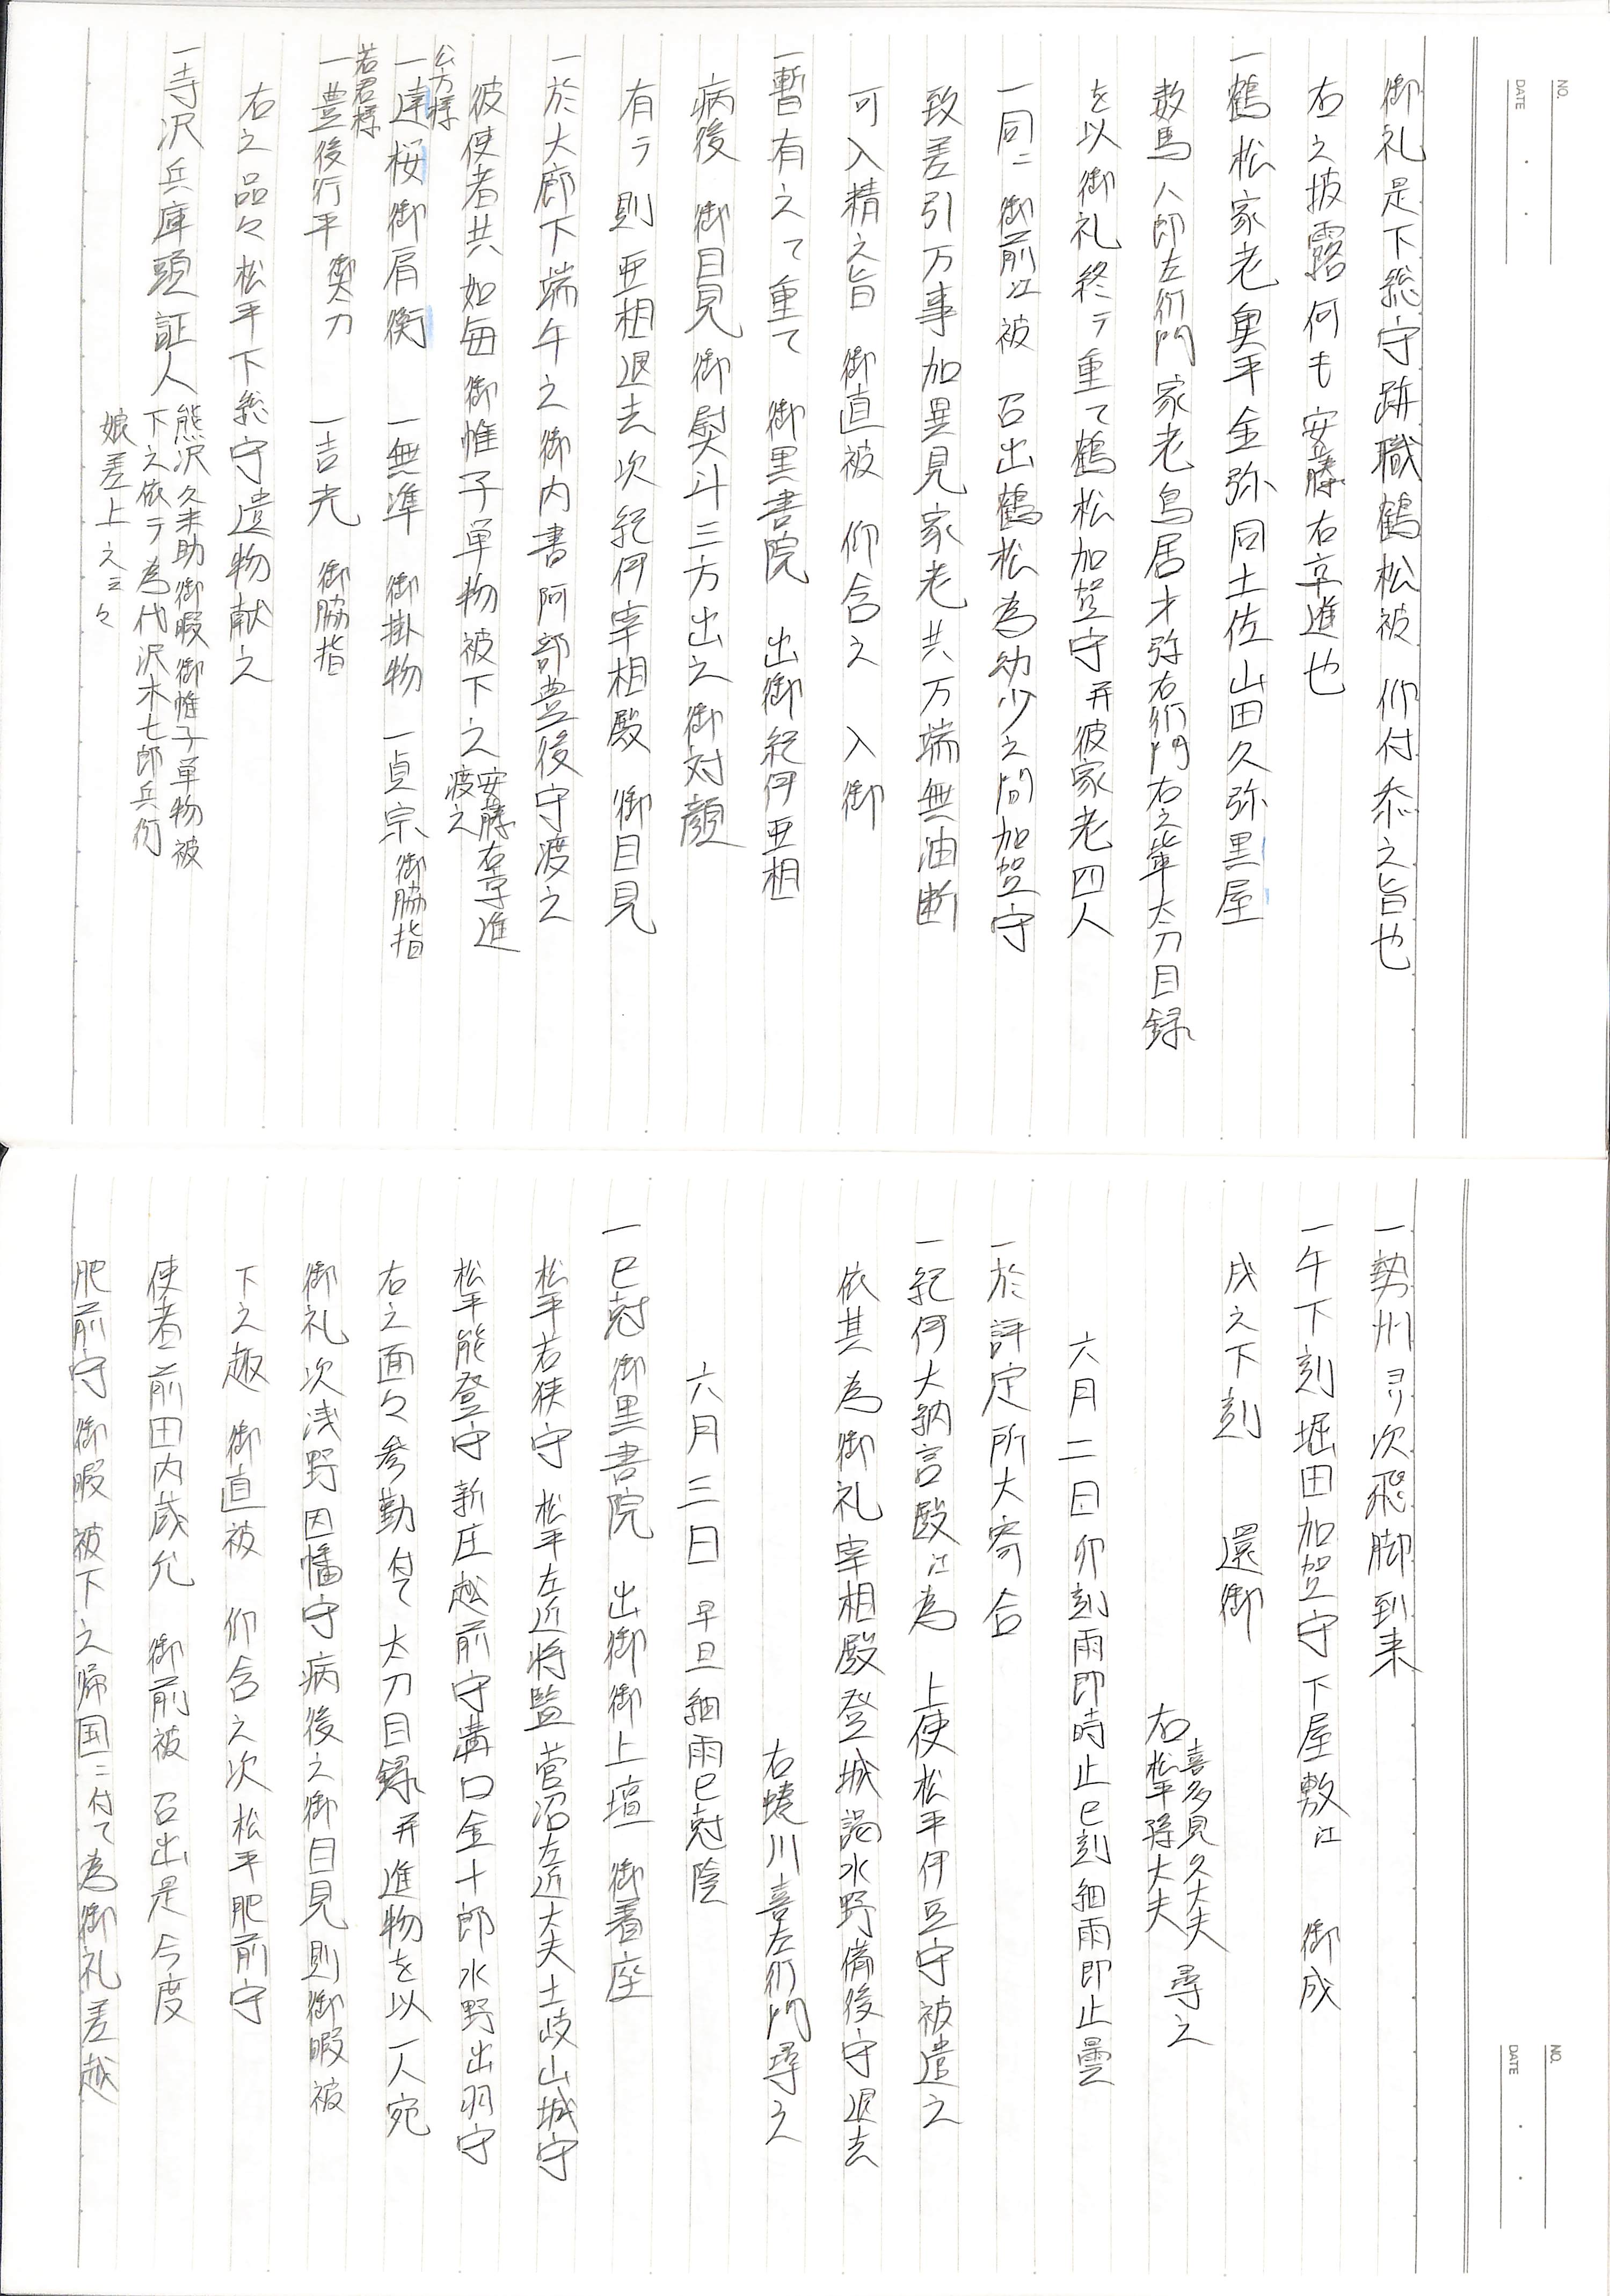 NO.
DATE
御礼是下総守跡職鶴松被　仰付忝之旨也
右之披露何も安藤右京進也
一鶴松家老奥平金弥同土佐山田久弥黒屋
数馬八郎左衛門家老鳥居才弥右衛門右之輩太刀目録
を以御礼終テ重て鶴松加賀守并彼家老四人
一同ニ御前江被　召出鶴松為幼少之間加賀守
致差引万事加異見家老共万端無油断
可入精之旨　御直被　仰含之　入御
一暫有之て重て　御黒書院　出御紀伊亜相
病後　御目見御熨斗三方出之御対顔
有テ則亜相退去次紀伊宰相殿　御目見
一於大廊下端午之御内書阿部豊後守渡之
彼使者共如毎御帷子単物被下之安藤右京進
渡之
公方様
一達桜御肩衡　一無準　御掛物　一貞宗御脇指
若君様
一豊後行平　御太刀　一吉光　御脇指
右之品々松平下総守遺物献之
一寺沢兵庫頭証人熊沢久未助御暇御帷子単物被
下之依テ為代沢木七郎兵衛
娘差上之云々
NO.
DATE
一勢州ヨリ次飛脚到来
一午下刻堀田加賀守下屋敷江　御成
戌之下刻　還御
喜多見久大夫
右松平隼大夫　尋之
六月二日卯刻雨即時止巳刻細雨即止曇
一於評定所大寄合
一紀伊大納言殿江為　上使松平伊豆守被遣之
依其為御礼宰相殿登城謁水野備後守退去
右蜷川喜左衛門尋之
六月三日早旦細雨巳尅陰
一巳尅御黒書院　出御御上壇　御着座
松平若狭守　松平左近将監　菅沼左近大夫土岐山城守
松平能登守　新庄越前守溝口金十郎水野出羽守
右之面々参勤付て　太刀目録并進物を以一人宛
御礼次浅野因幡守病後之御目見則御暇被
下之趣　御直被　仰含之次松平肥前守
使者前田内蔵允　御前被　召出是今度
肥前守御暇被下之帰国ニ付て為御礼差越